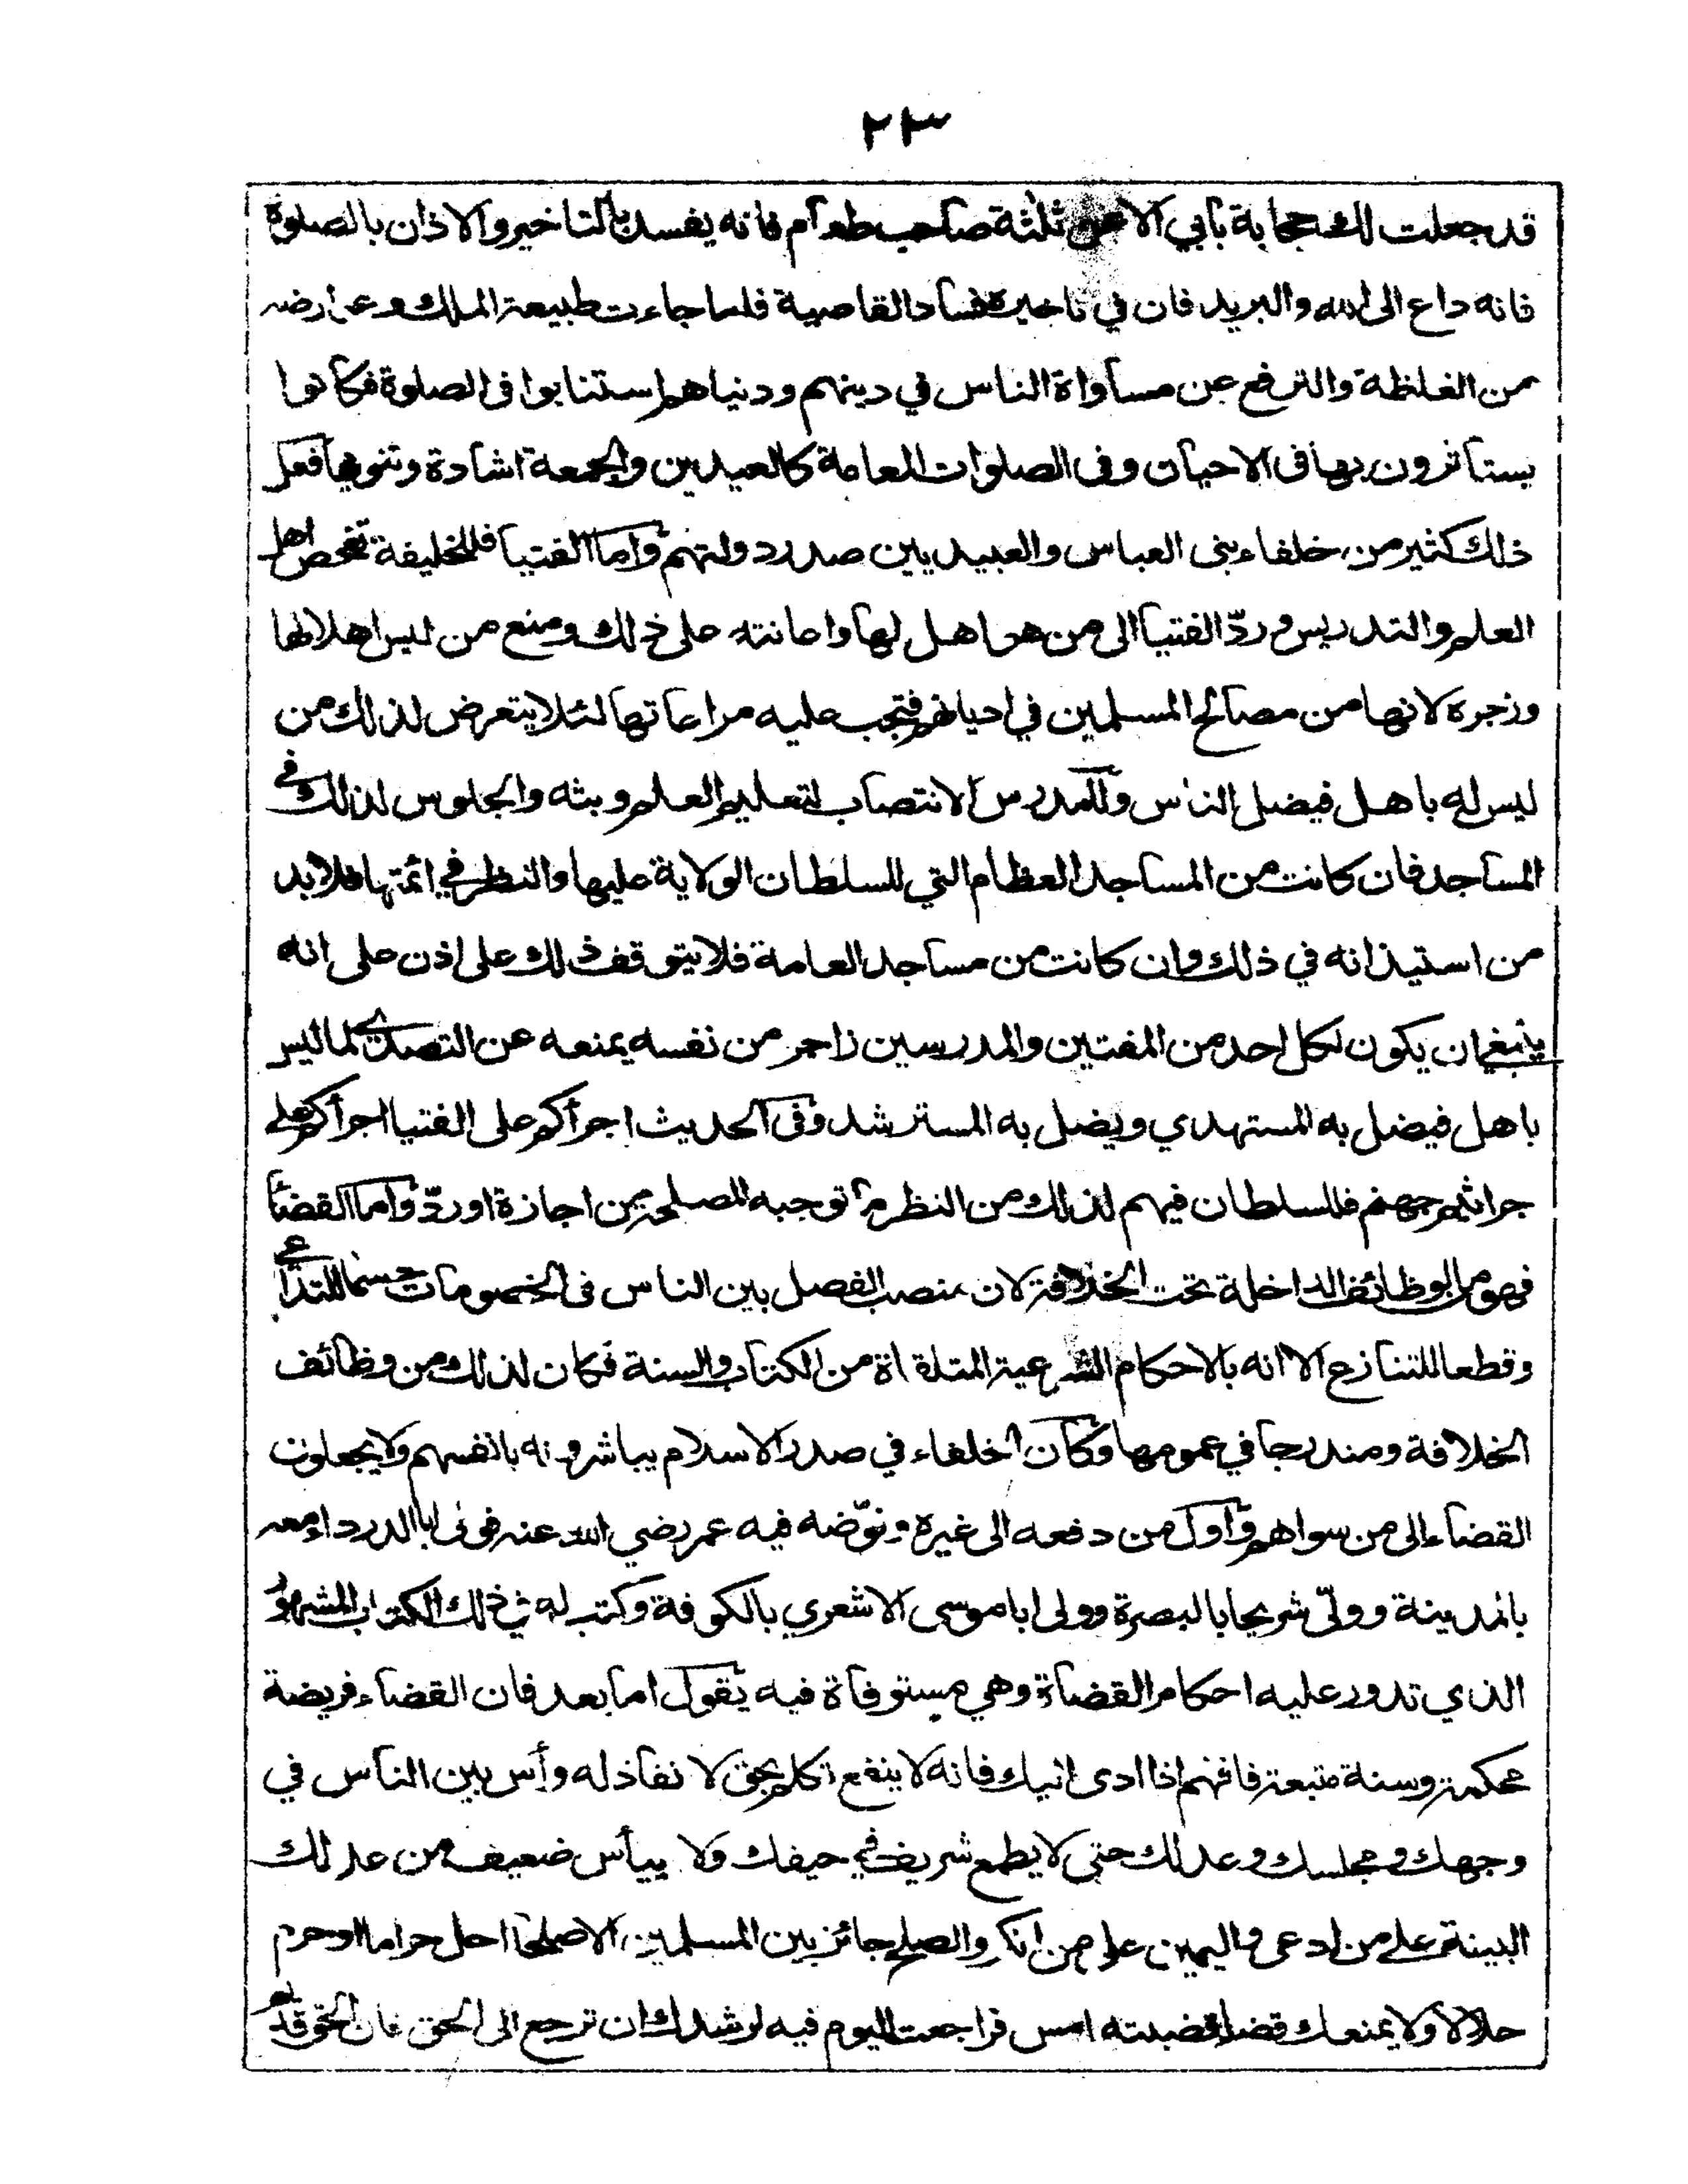 ٢٣
قد جعلت لك حجابة بابي الا عن ثلثة صاحب طعام فانه يفسد بالتاخير والاذان بالصلوة
فانه داع الى الله والبريد فان في تاخيره فساد القاصية فلما جاءت طبيعة الملك وعوارضه
من الغلظة والترفع عن مساواة الناس في دينهم ودنياهم استنابوا فى الصلوة فكانوا
يستأثرون بها فى الاحيان وفى الصلوات العامة كالعيدين والجمعة اشادة وتنويها فعل
ذلك كثير من خلفاء بنى العباس والعبيديين صدر دولتهم واما الفتيا فللخليفة تفحص اهل
العلم والتدريس ورد الفتيا الى من هو اهل لها واعانته على ذلك ومنع من ليس اهلا لها
وزجره لانها من مصالح المسلمين في اديانهم فتجب عليه مراعاتها لئلا يتعرض لذلك من
ليس له باهل فيضل الناس وللمدرس الانتصاب لتعليم العلم وبثه والجلوس لذلك في
المساجد فان كانت من المساجد العظام التي للسلطان الولاية عليها والنظر في ائمتها فلا بد
من استيذانه في ذلك وان كانت من مساجد العامة فلا يتوقف ذلك على اذن على انه
ينبغي ان يكون لكل احد من المفتين والمدرسين زاجر من نفسه يمنعه عن التصدي لما ليس
باهل فيضل به المستهدي ويضل به المسترشد وفى الحديث اجرأكم على الفتيا اجرأكم على
جراثيم جهنم فللسلطان فيهم لذلك من النظر ما توجبه المصلحة من اجازة او ردّ واما القضأ
فهو من الوظائف الداخلة تحت الخلافة لان منصب الفصل بين الناس فى الخصومات حسما للتداعي
وقطعا للتنازع الا انه بالاحكام الشرعية المتلقاة من الكتاب والسنة فكان لذلك من وظائف
الخلافة ومندرجا في عمومها وكان الخلفاء في صدر الاسلام يباشرونه بانفسهم ولا يجعلون
القضاء الى من سواهم واول من دفعه الى غيره وفوّضه فيه عمر رضي الله عنه فولى ابا الدرداء معه
بالمدينة وولّى شريحا بالبصرة وولى ابا موسى الاشعري بالكوفة وكتب له في ذلك الكتاب المشهور
الذي تدور عليه احكام القضاة وهي مستوفاة فيه يقول اما بعد فان القضاء فريضة
محكمة وسنة متبعة فافهم اذا ادى اليك فانه لا ينفع تكلم بحق لا نفاذ له وأس بين الناس في
وجهك ومجلسك وعدلك حتى لا يطمع شريف في حيفك ولا ييأس ضعيف من عدلك
البينة على من ادعى واليمين على من انكر والصلح جائز بين المسلمين الا صلحا احل حراما او حرم
حلالا ولا يمنعك قضاء قضيته امس فراجعت اليوم فيه لرشدك ان ترجع الى الحق فان الحق قديم